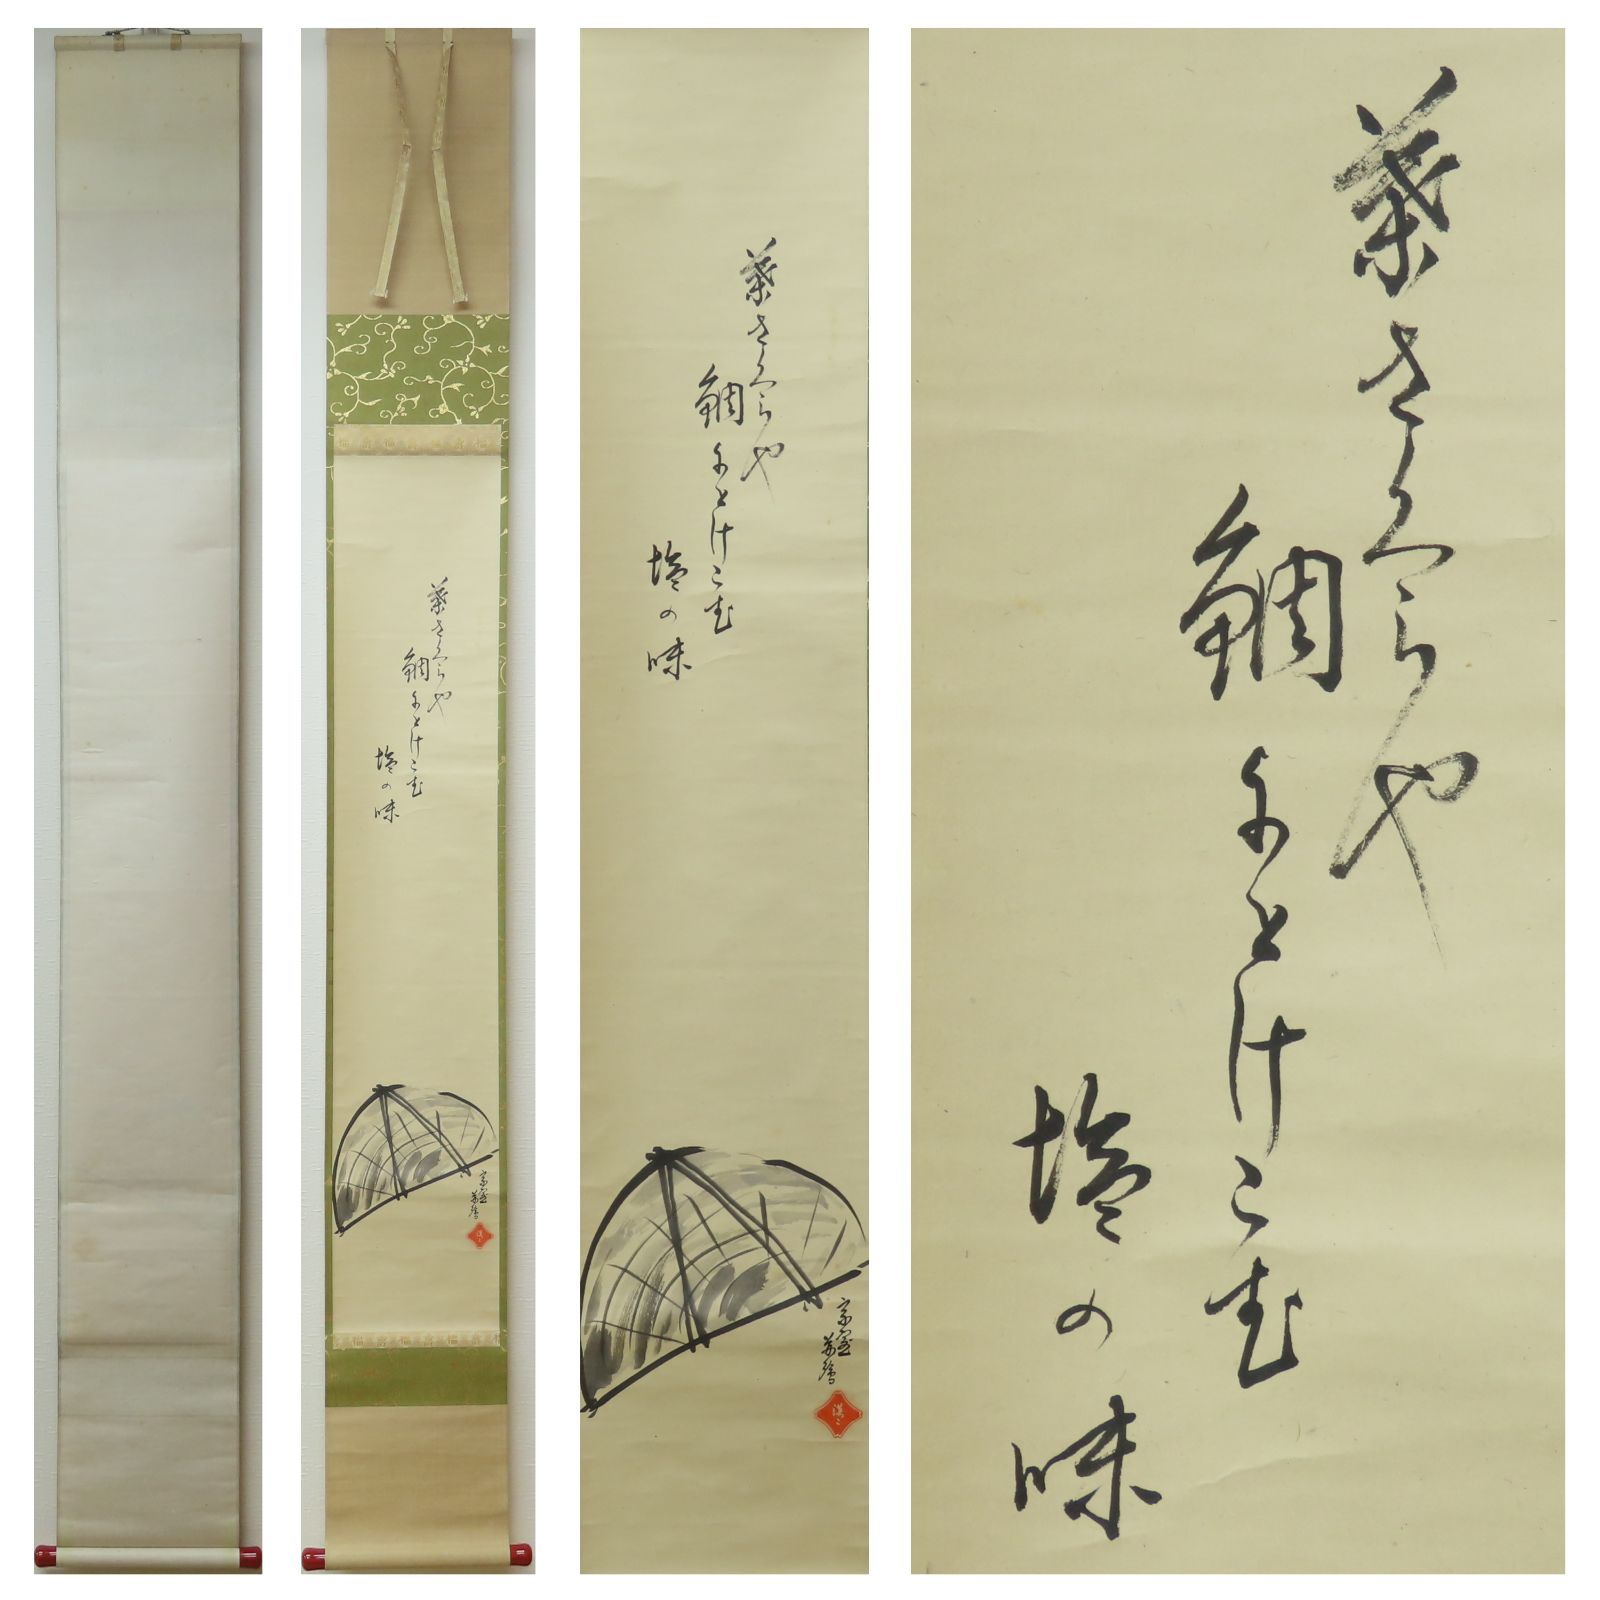 葉さくらや
鯛にとけこむ
塩の味
葉さくらや
鯛にとけこむ
塩の味
葉さくらや
鯛にとけこむ
塩の味